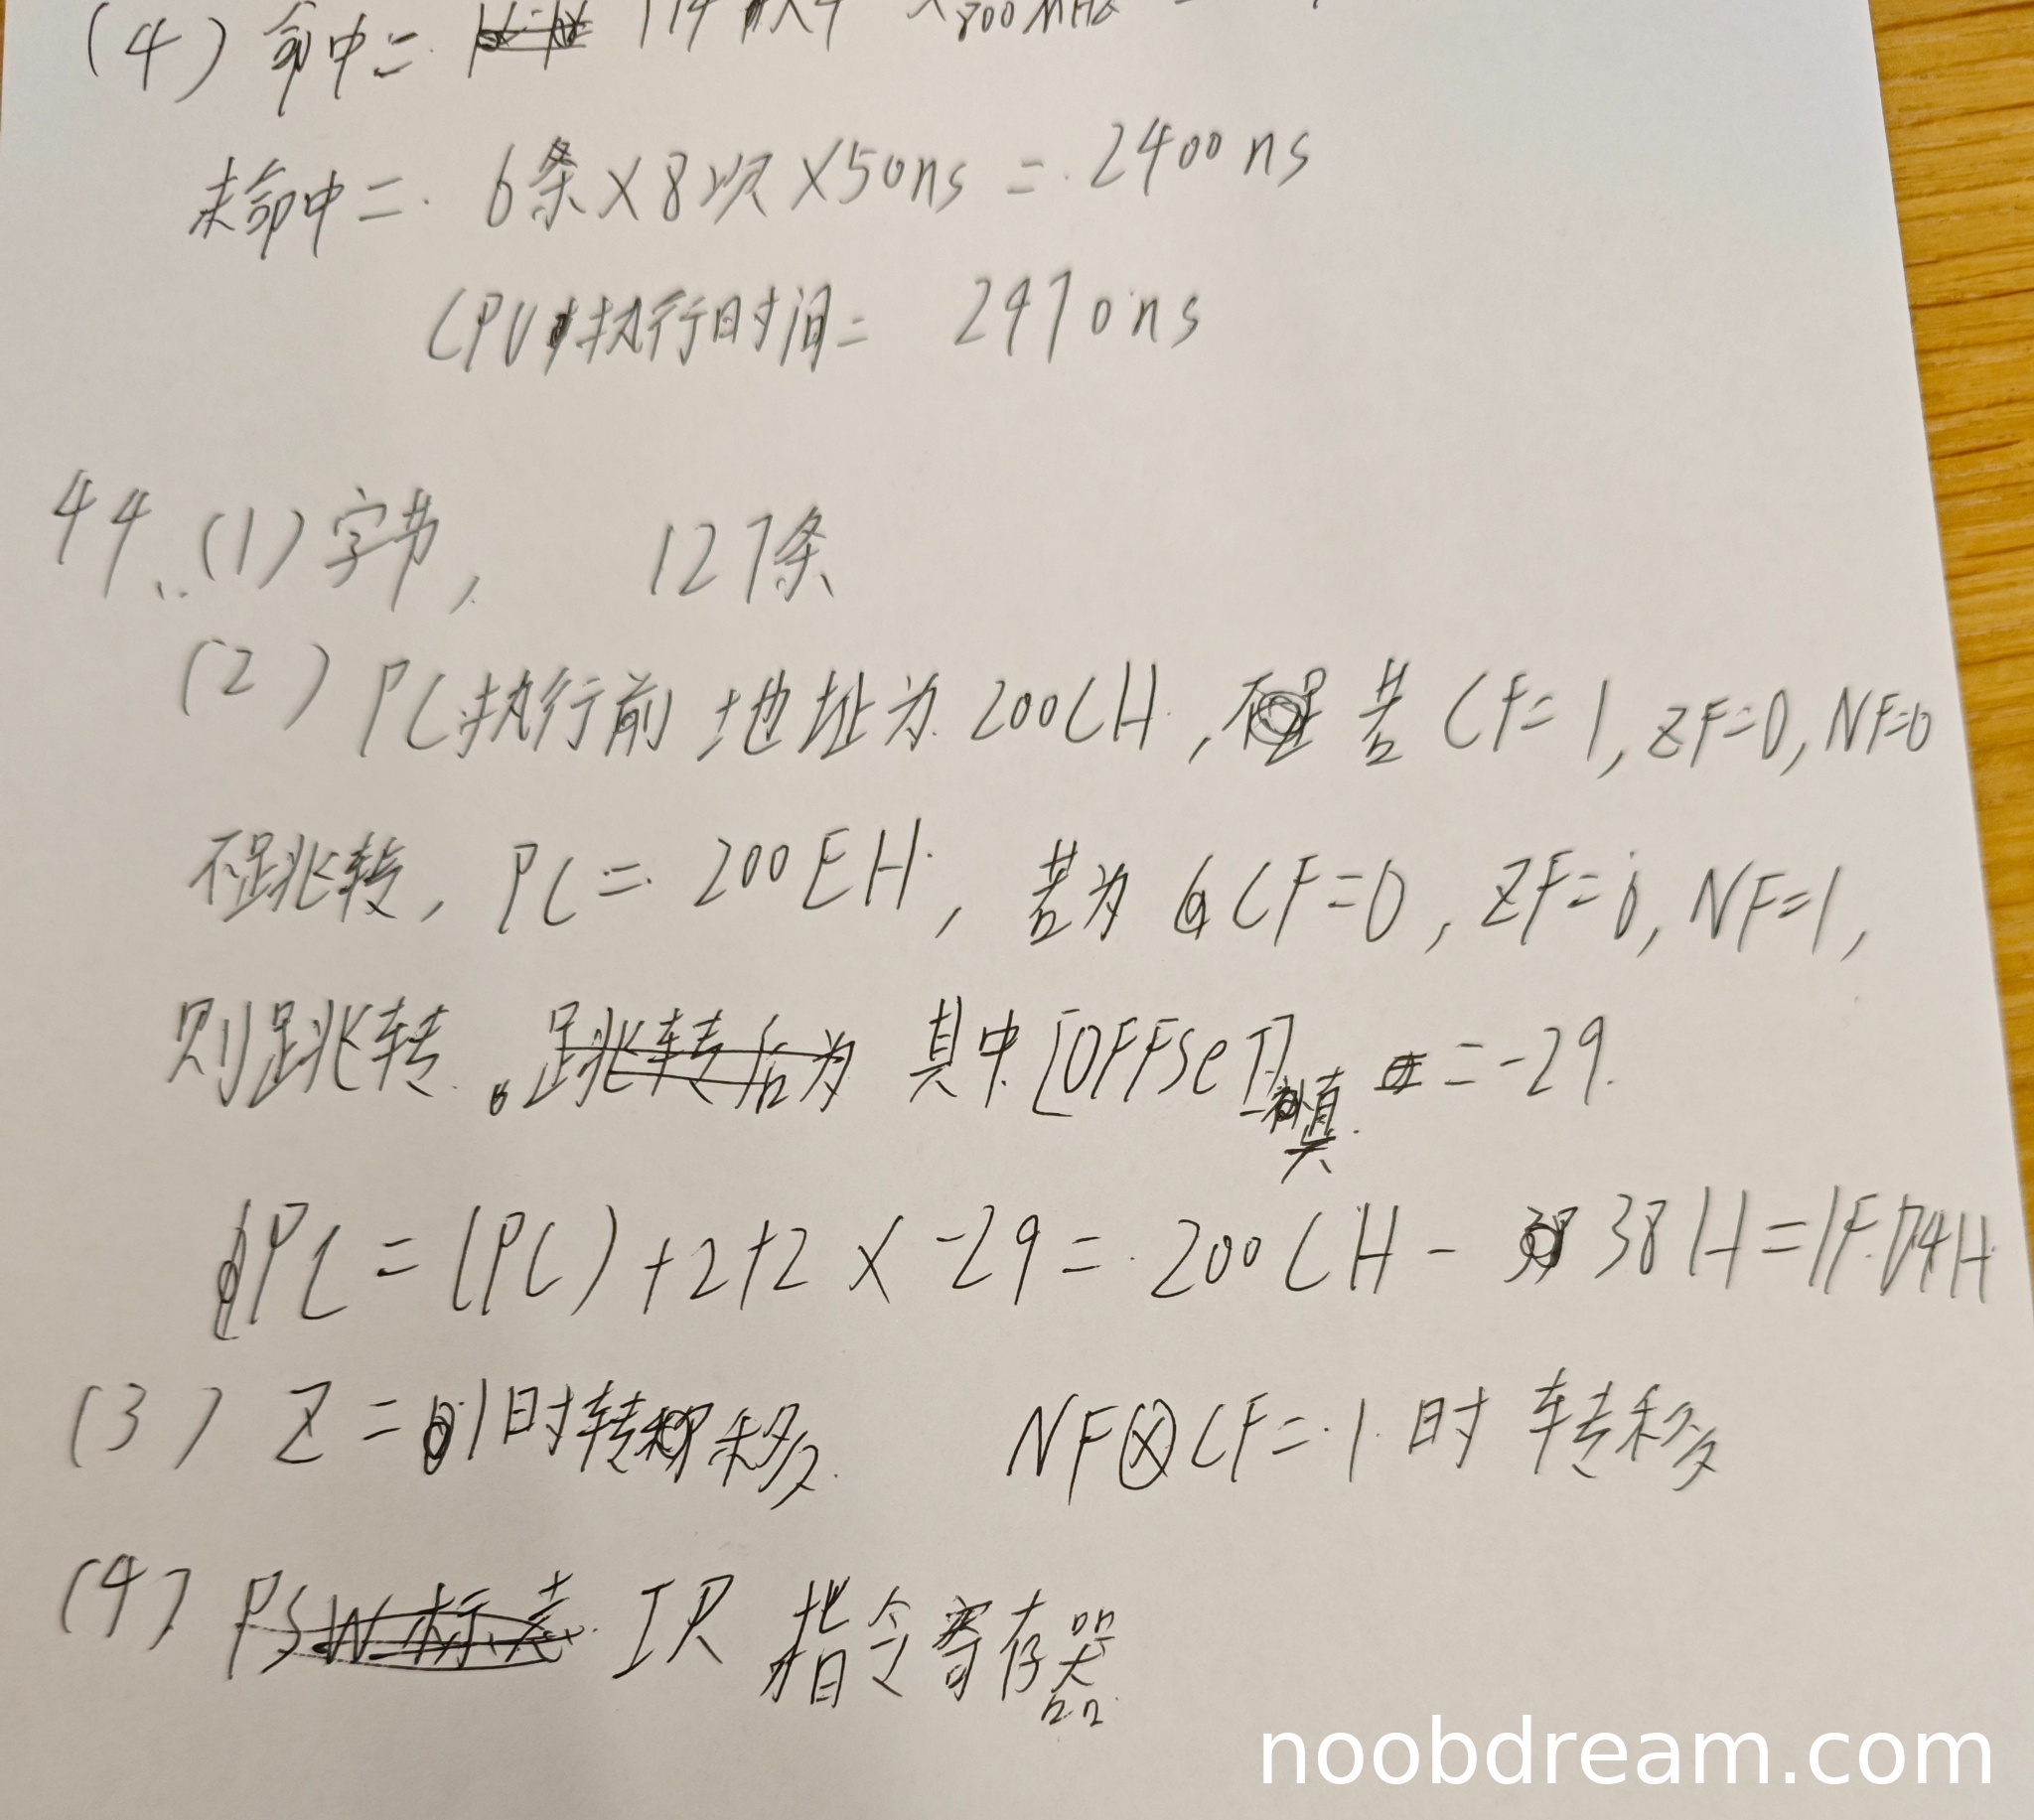 (4) 命中=
未命中=. 6条×8次×50ns = 2400ns
CPU执行时间= 2470ns
44、(1)字节, 127条
(2) PC执行前地址为200CH, 若CF=1, ZF=0, NF=0
不跳转, PC = 200EH, 若为CF=0, ZF=0, NF=1,
则跳转。跳转后为 其中[OFFSeT]补 = -29.
PC = (PC)+2+2×-29 = 200CH - 38H = 1FD4H
(3) Z=1时转移 NF⊗CF=1时转移
(4) PSW标志 IR 指令寄存器
noobdream.com